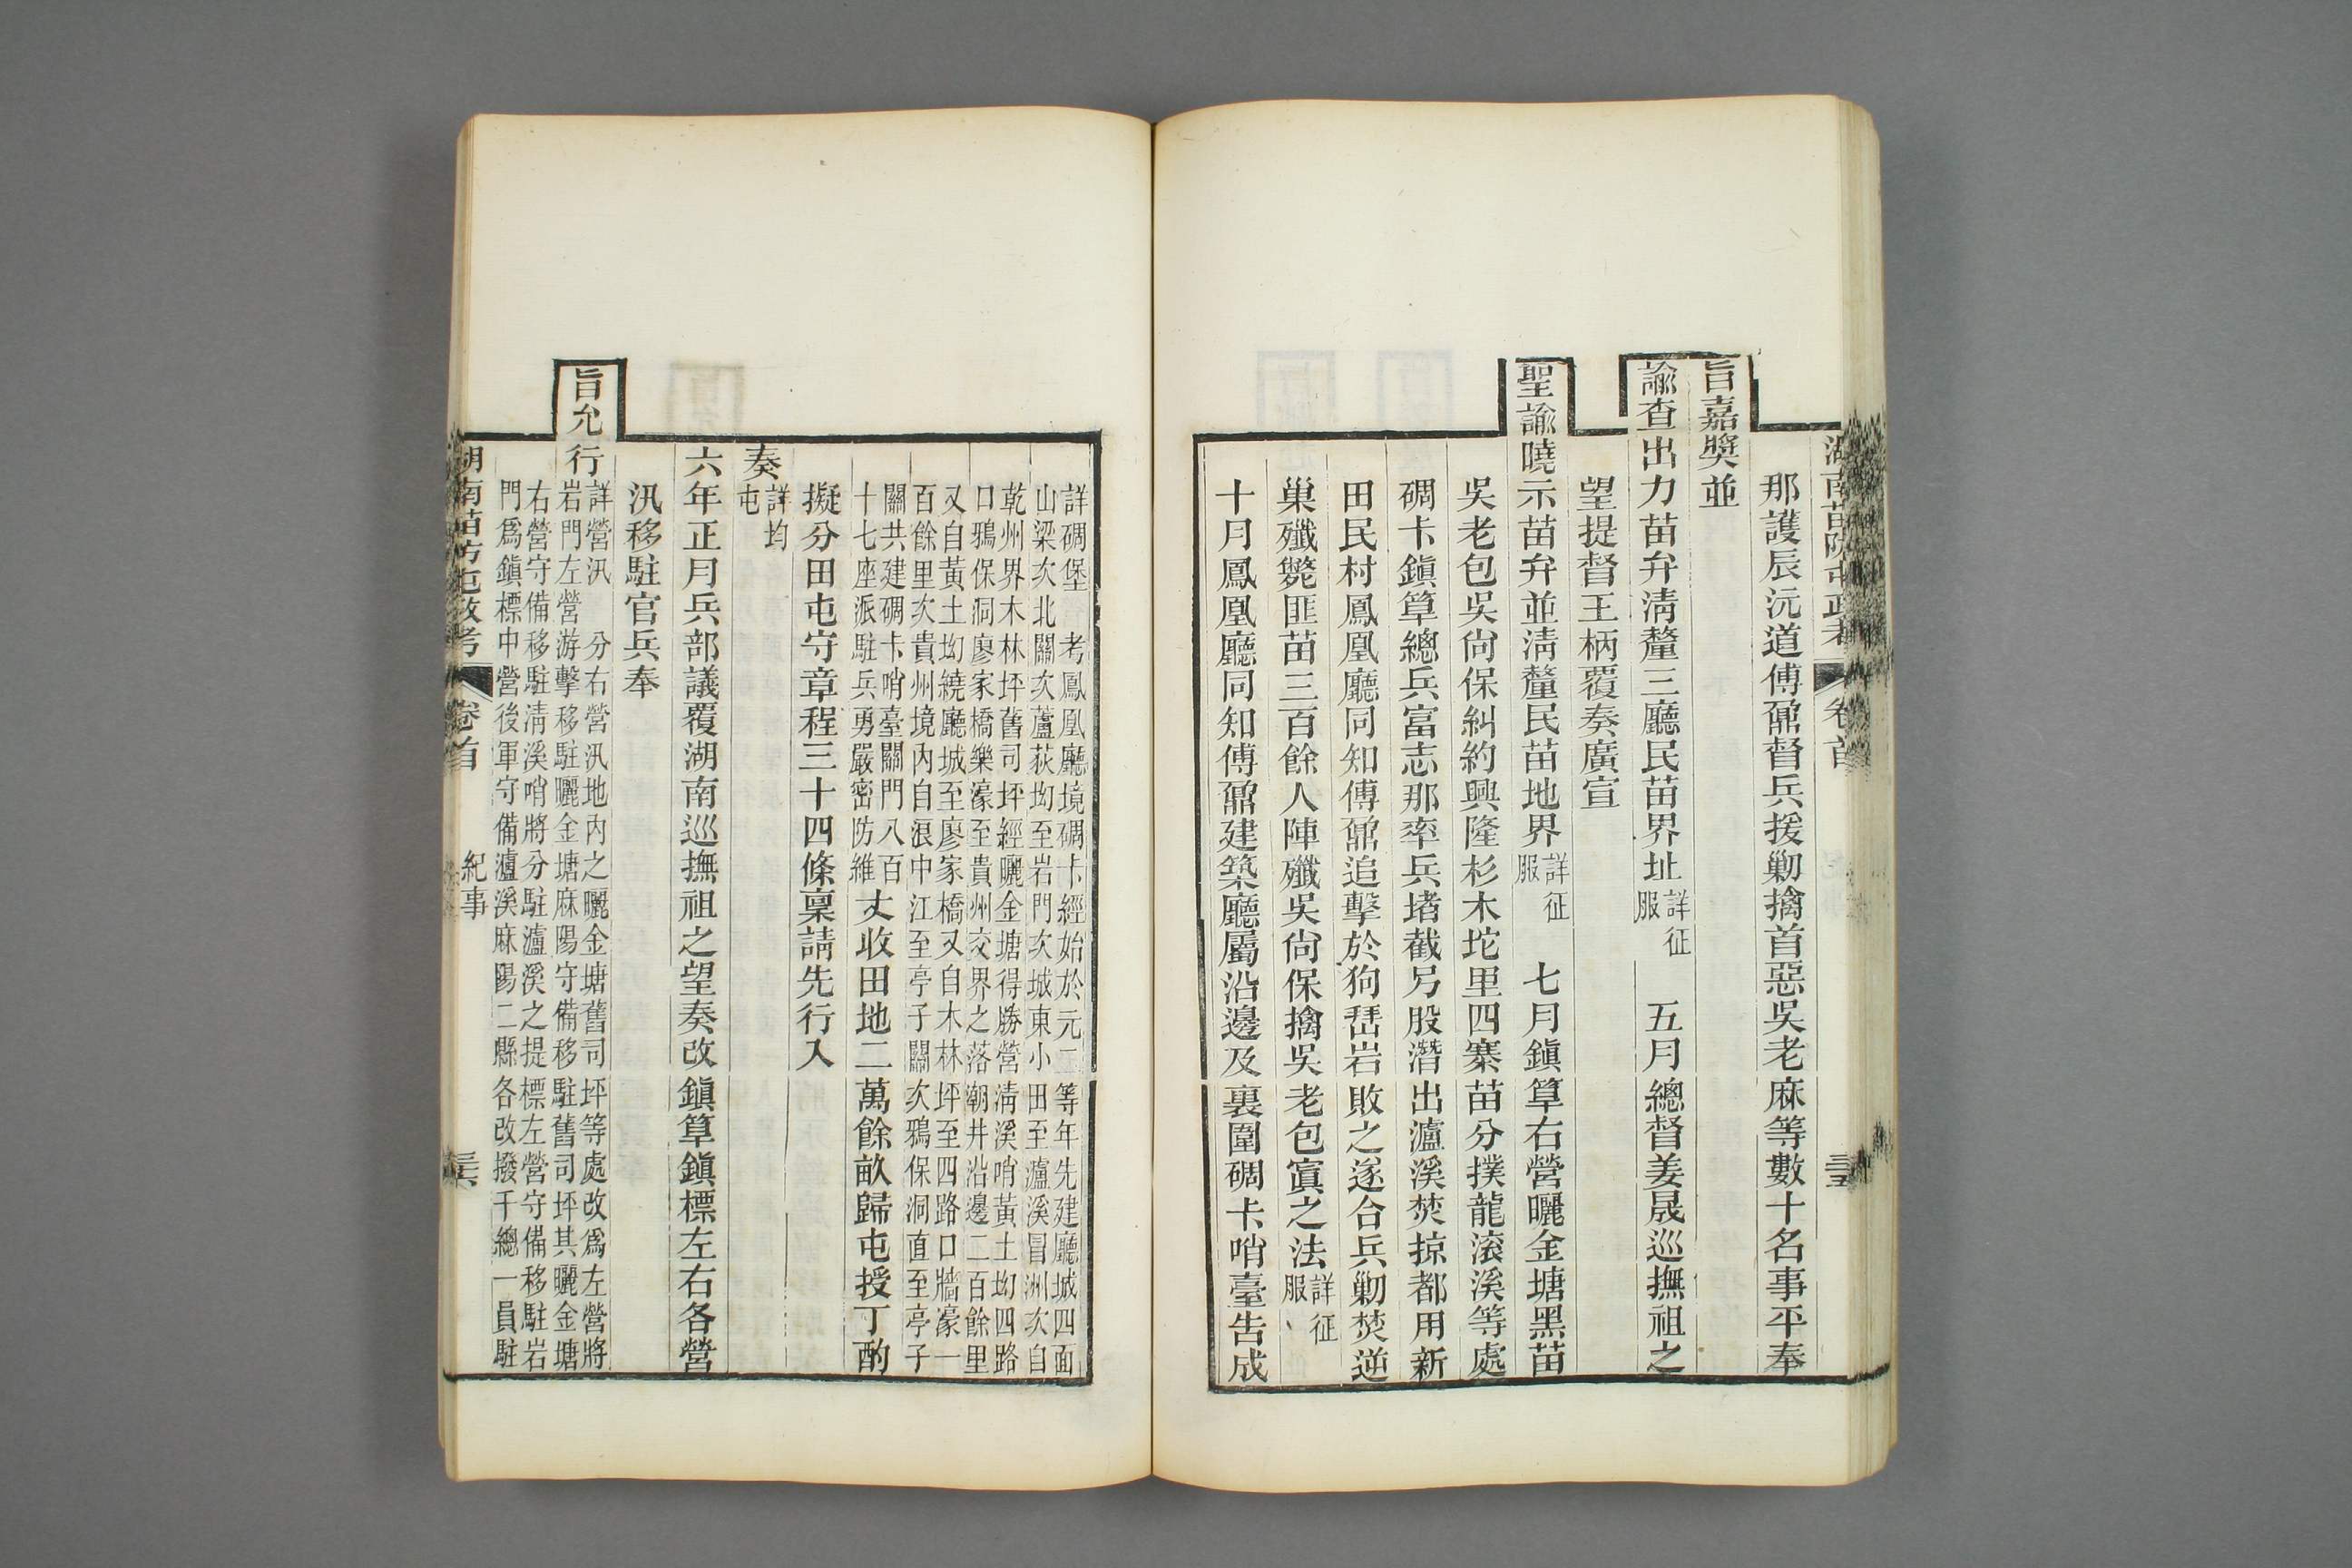 湖南苗防屯政考 卷首 三五
那護辰沅道傅鼐督兵援勦擒首惡吳老麻等數十名事平奉
旨嘉獎並
諭查出力苗弁清釐三廳民苗界址詳征服 五月總督姜晟巡撫祖之
望提督王柄覆奏廣宣
聖諭曉示苗弁並清釐民苗地界詳征服 七月鎭筸右營曬金塘黑苗
吳老包吳尙保糾約興隆杉木坨里四寨苗分撲龍滾溪等處
碉卡鎭筸總兵富志那率兵堵截另股潛出瀘溪焚掠都用新
田民村鳳凰廳同知傅鼐追擊於狗碞岩敗之遂合兵勦焚逆
巢殲斃匪苗三百餘人陣殲吳尙保擒吳老包寘之法詳征服
十月鳳凰廳同知傅鼐建築廳屬沿邊及裏圍碉卡哨臺告成
詳碉堡 考鳳凰廳境碉卡經始於元二等年先建廳城四面
山梁次北關次蘆荻坳至岩門次城東小田至瀘溪冒洲次自
乾州界木林坪舊司坪經曬金塘得勝營淸溪哨黃土坳四路
口鴉保洞廖家橋樂濠至貴州交界之落潮井沿邊二百餘里
又自黃土坳繞廳城至廖家橋又自木林坪至四路口牆濠一
百餘里次貴州境內自浪中江至亭子關次鴉保洞直至亭子
關共建碉卡哨臺關門八百
十七座派駐兵勇嚴密防維
丈收田地二萬餘畝歸屯授丁酌
擬分田屯守章程三十四條稟請先行入
奏詳均屯
六年正月兵部議覆湖南巡撫祖之望奏改鎭筸鎭標左右各營
汛移駐官兵奉
旨允行
詳營汛 分右營汛地內之曬金塘舊司坪等處改爲左營將
岩門左營游擊移駐曬金塘麻陽守備移駐舊司坪其曬金塘
右營守備移駐淸溪哨將分駐瀘溪之提標左營守備移駐岩
門爲鎭標中營後軍守備瀘溪麻陽二縣各改撥千總一員駐
湖南苗防屯政考 卷首 紀事 三六